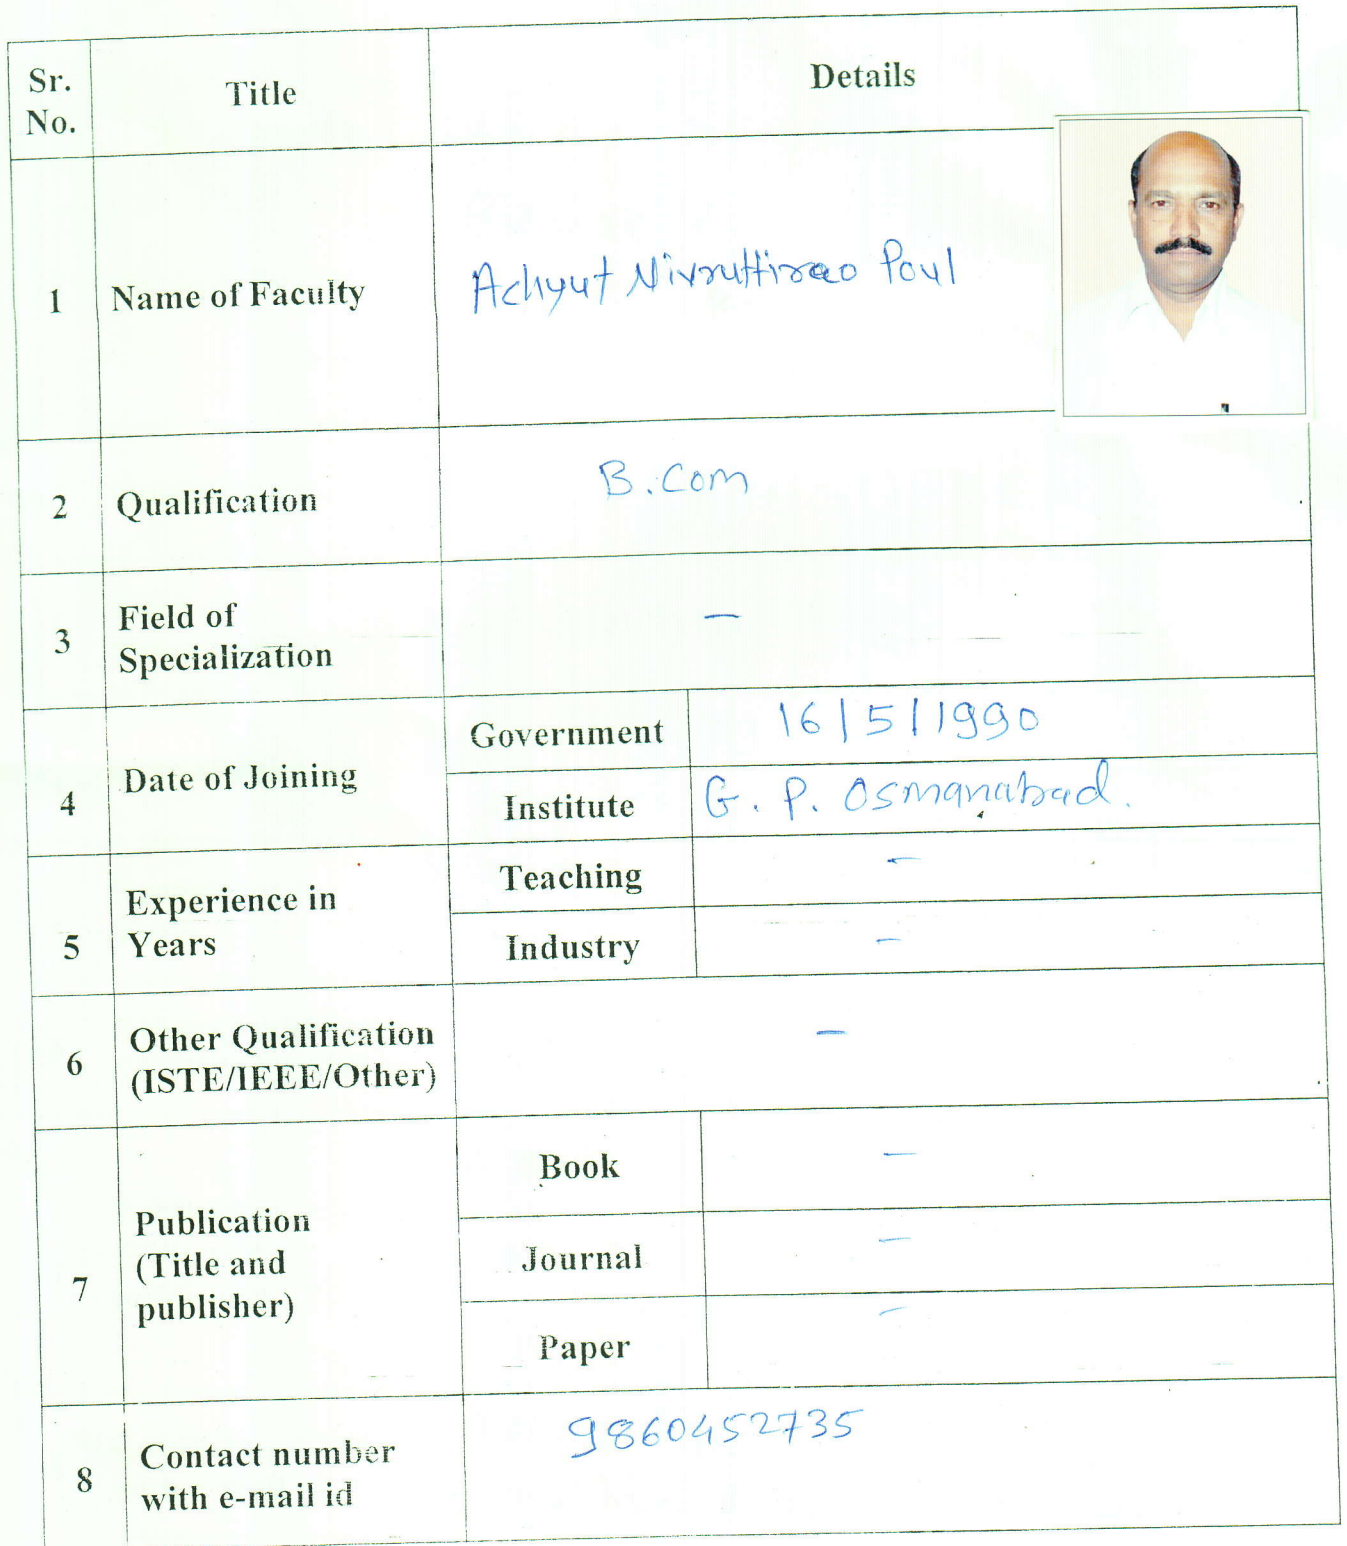 Sr. No. Title Details
1 Name of Faculty Achyut Nivruttirao Poul
2 Qualification B.Com
3 Field of Specialization —
4 Date of Joining Government 16/5/1990
Institute G. P. Osmanabad.
5 Experience in Years Teaching —
Industry —
6 Other Qualification (ISTE/IEEE/Other) —
7 Publication (Title and publisher) Book —
Journal —
Paper —
8 Contact number with e-mail id 9860452735